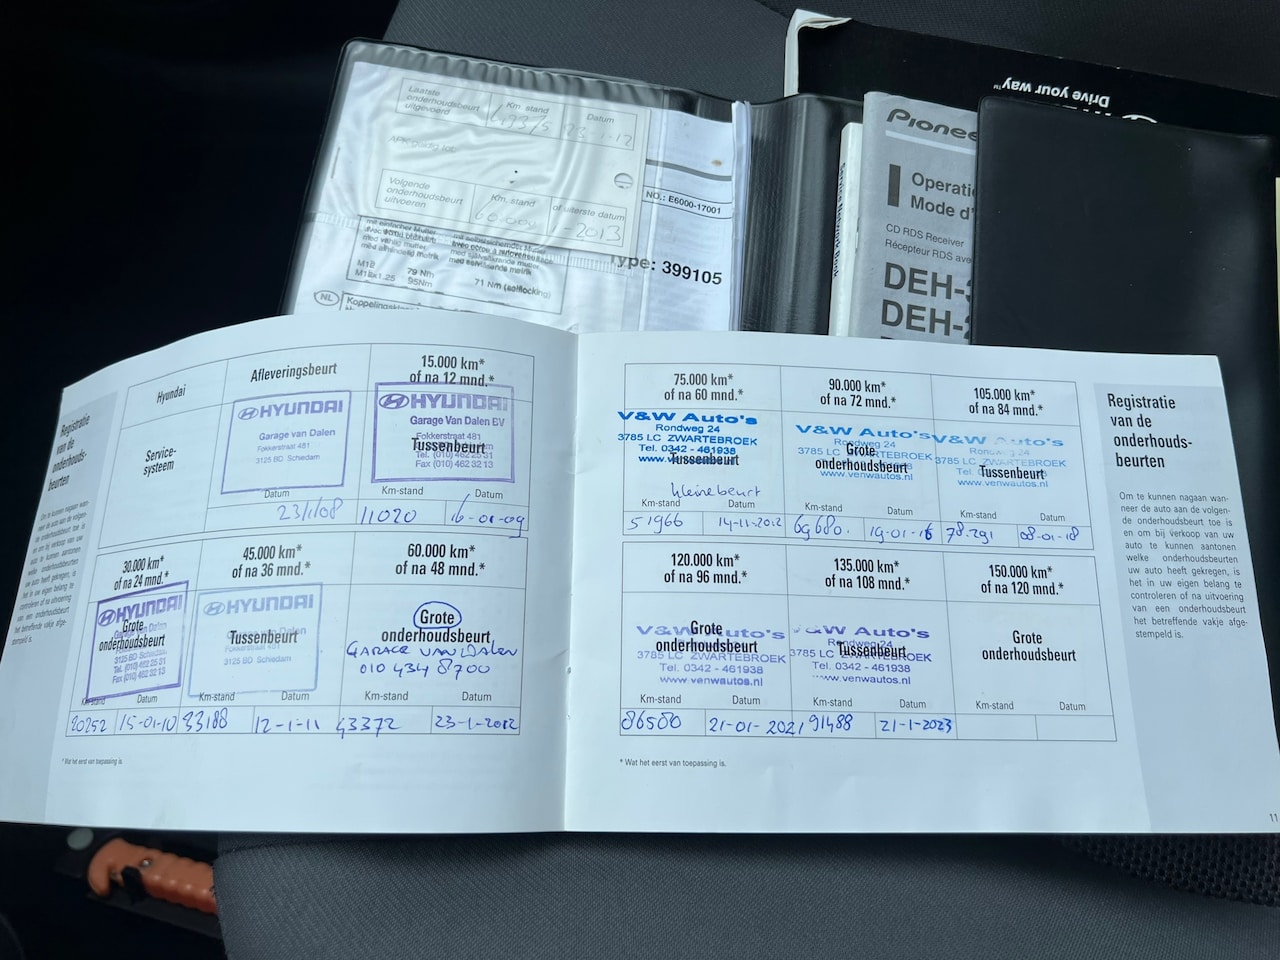 Laatste
onderhoudsbeurt
uitgevoerd
Km. stand
Datum
Volgende
onderhoudsbeurt
uitvoeren
Km. stand
of uiterste datum
60.000
2013
NO.: E6000-17001
Type: 399105
M12 79 Nm
M12x1.25 95Nm
71 Nm (selflocking)
NL
Drive your way™
Pionee
Operati
Mode d'
CD RDS Receiver
Récepteur RDS ave
DEH-
DEH-
Registratie
van de
onderhouds-
beurten
Hyundai
Service-
systeem
Afleveringsbeurt
HYUNDAI
Garage van Dalen
Fokkerstraat 481
3125 BD Schiedam
Datum
23/1/08
15.000 km*
of na 12 mnd.*
HYUNDAI
Garage Van Dalen BV
Fokkerstraat 481
Tussenbeurt
Tel. (010) 462 25 31
Fax (010) 462 32 13
Km-stand
Datum
11020
16-01-09
30.000 km*
of na 24 mnd.*
HYUNDAI
Grote
onderhoudsbeurt
3125 BD Schiedam
Tel. (010) 462 25 31
Fax (010) 462 32 13
Km-stand
Datum
20252
15-01-10
45.000 km*
of na 36 mnd.*
HYUNDAI
Tussenbeurt
3125 BD Schiedam
Km-stand
Datum
33188
12-1-11
60.000 km*
of na 48 mnd.*
Grote
onderhoudsbeurt
GARAGE VAN DALEN
010 434 8700
Km-stand
Datum
43372
23-1-2012
* Wat het eerst van toepassing is.
75.000 km*
of na 60 mnd.*
V&W Auto's
Rondweg 24
3785 LC ZWARTEBROEK
Tel. 0342 - 461938
Tussenbeurt
kleine beurt
Km-stand
Datum
51966
14-11-2012
90.000 km*
of na 72 mnd.*
V&W Auto's
Rondweg 24
3785 LC ZWARTEBROEK
Grote
onderhoudsbeurt
www.venwautos.nl
Km-stand
Datum
69680.
19-01-16
105.000 km*
of na 84 mnd.*
V&W Auto's
3785 LC ZWARTEBROEK
Tussenbeurt
www.venwautos.nl
Km-stand
Datum
78.291
08-01-18
120.000 km*
of na 96 mnd.*
V&W Auto's
Grote
onderhoudsbeurt
3785 LC ZWARTEBROEK
Tel. 0342 - 461938
www.venwautos.nl
Km-stand
Datum
86580
21-01-2021
135.000 km*
of na 108 mnd.*
V&W Auto's
Rondweg 24
3785 LC ZWARTEBROEK
Tussenbeurt
Tel. 0342 - 461938
www.venwautos.nl
Km-stand
Datum
91488
21-1-2023
150.000 km*
of na 120 mnd.*
Grote
onderhoudsbeurt
Km-stand
Datum
* Wat het eerst van toepassing is.
Registratie
van de
onderhouds-
beurten
Om te kunnen nagaan wan-
neer de auto aan de volgen-
de onderhoudsbeurt toe is
en om bij verkoop van uw
auto te kunnen aantonen
welke onderhoudsbeurten
uw auto heeft gekregen, is
het in uw eigen belang te
controleren of na uitvoering
van een onderhoudsbeurt
het betreffende vakje afge-
stempeld is.
11